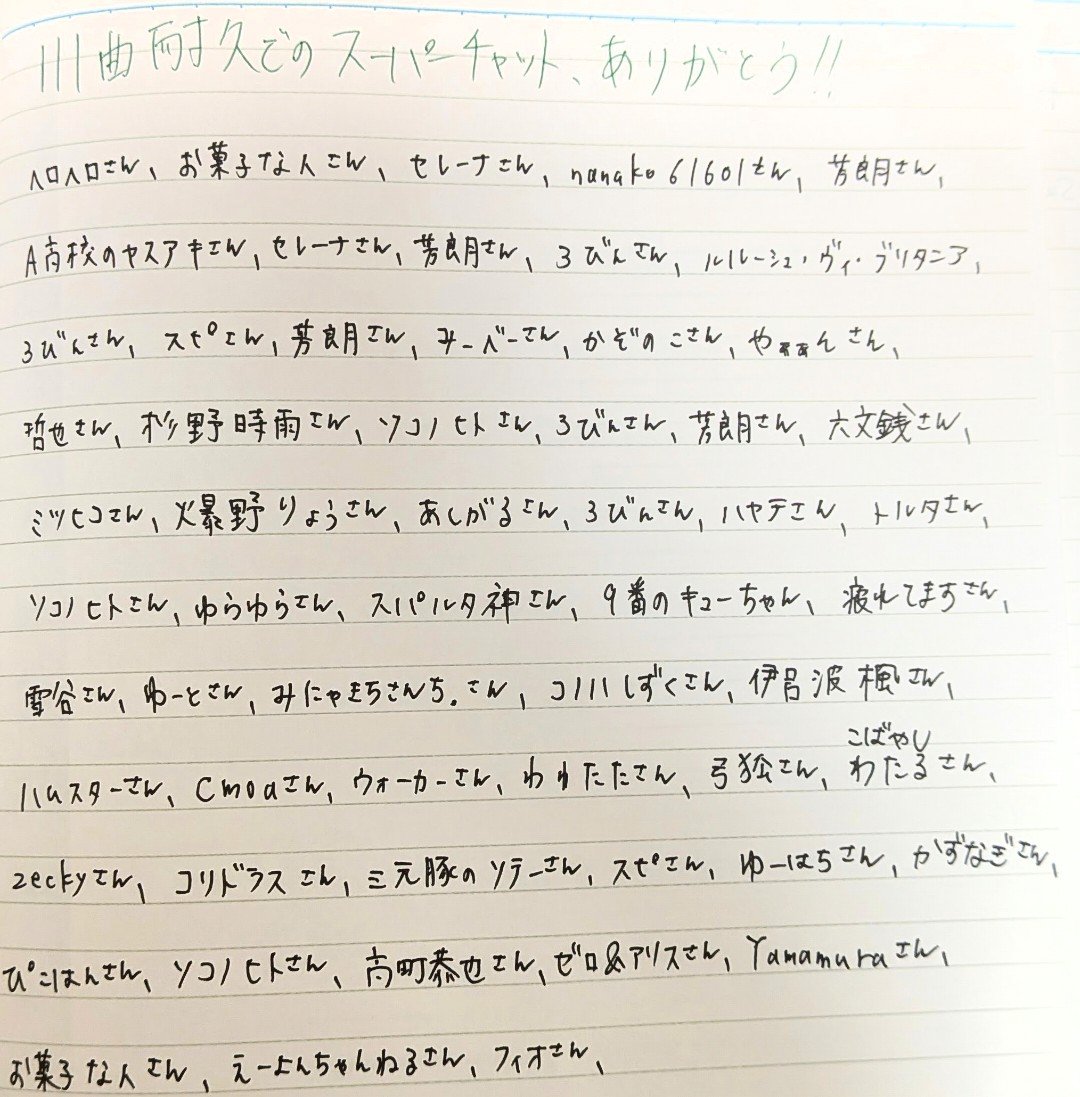 111曲耐久でのスーパーチャット、ありがとう!!
ヘロヘロさん、お菓子な人さん、セレーナさん、nanako61601さん、芳朗さん、
A高校のヤスアキさん、セレーナさん、芳朗さん、ろびんさん、ルルーシュ・ヴィ・ブリタニア、
ろびんさん、スピさん、芳朗さん、みーべーさん、かぞのこさん、やぁぁんさん、
哲也さん、杉野時雨さん、ソコノヒトさん、ろびんさん、芳朗さん、六文銭さん、
ミツヒコさん、爆野りょうさん、あしがるさん、ろびんさん、ハヤテさん、トルタさん、
ソコノヒトさん、ゆらゆらさん、スパルタ神さん、9番のキューちゃん、疲れてますさん、
雪谷さん、ゆーとさん、みにゃまちさんち.さん、コノハしずくさん、伊呂波楓さん、
こばやし
ハムスターさん、Cmoaさん、ウォーカーさん、わわたたさん、弓狐さん、わたるさん、
zeckyさん、コリドラスさん、三元豚のソテーさん、スピさん、ゆーはちさん、かずなぎさん、
ぴこはんさん、ソコノヒトさん、高町恭也さん、ゼロ&アリスさん、Yamamuraさん、
お菓子な人さん、えーよんちゃんねるさん、フィオさん、